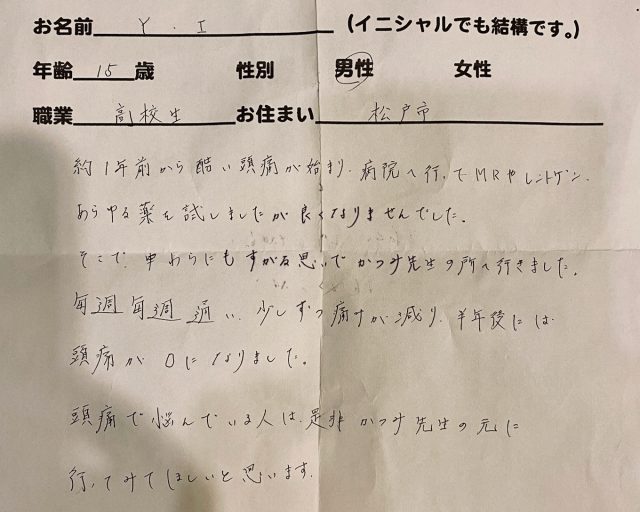 お名前 Y.I (イニシャルでも結構です。)
年齢 15 歳 性別 男性 女性
職業 高校生 お住まい 松戸市
約1年前から酷い頭痛が始まり、病院へ行ってMRやレントゲン、
あらゆる薬を試しましたが良くなりませんでした。
そこで、申わらにもすがる思いでかつみ先生の所へ行きました。
毎週毎週通い、少しずつ痛すが減り、半年後には
頭痛が0になりました。
頭痛で悩んでいる人は、是非かつみ先生の元に
行ってみてほしいと思います。